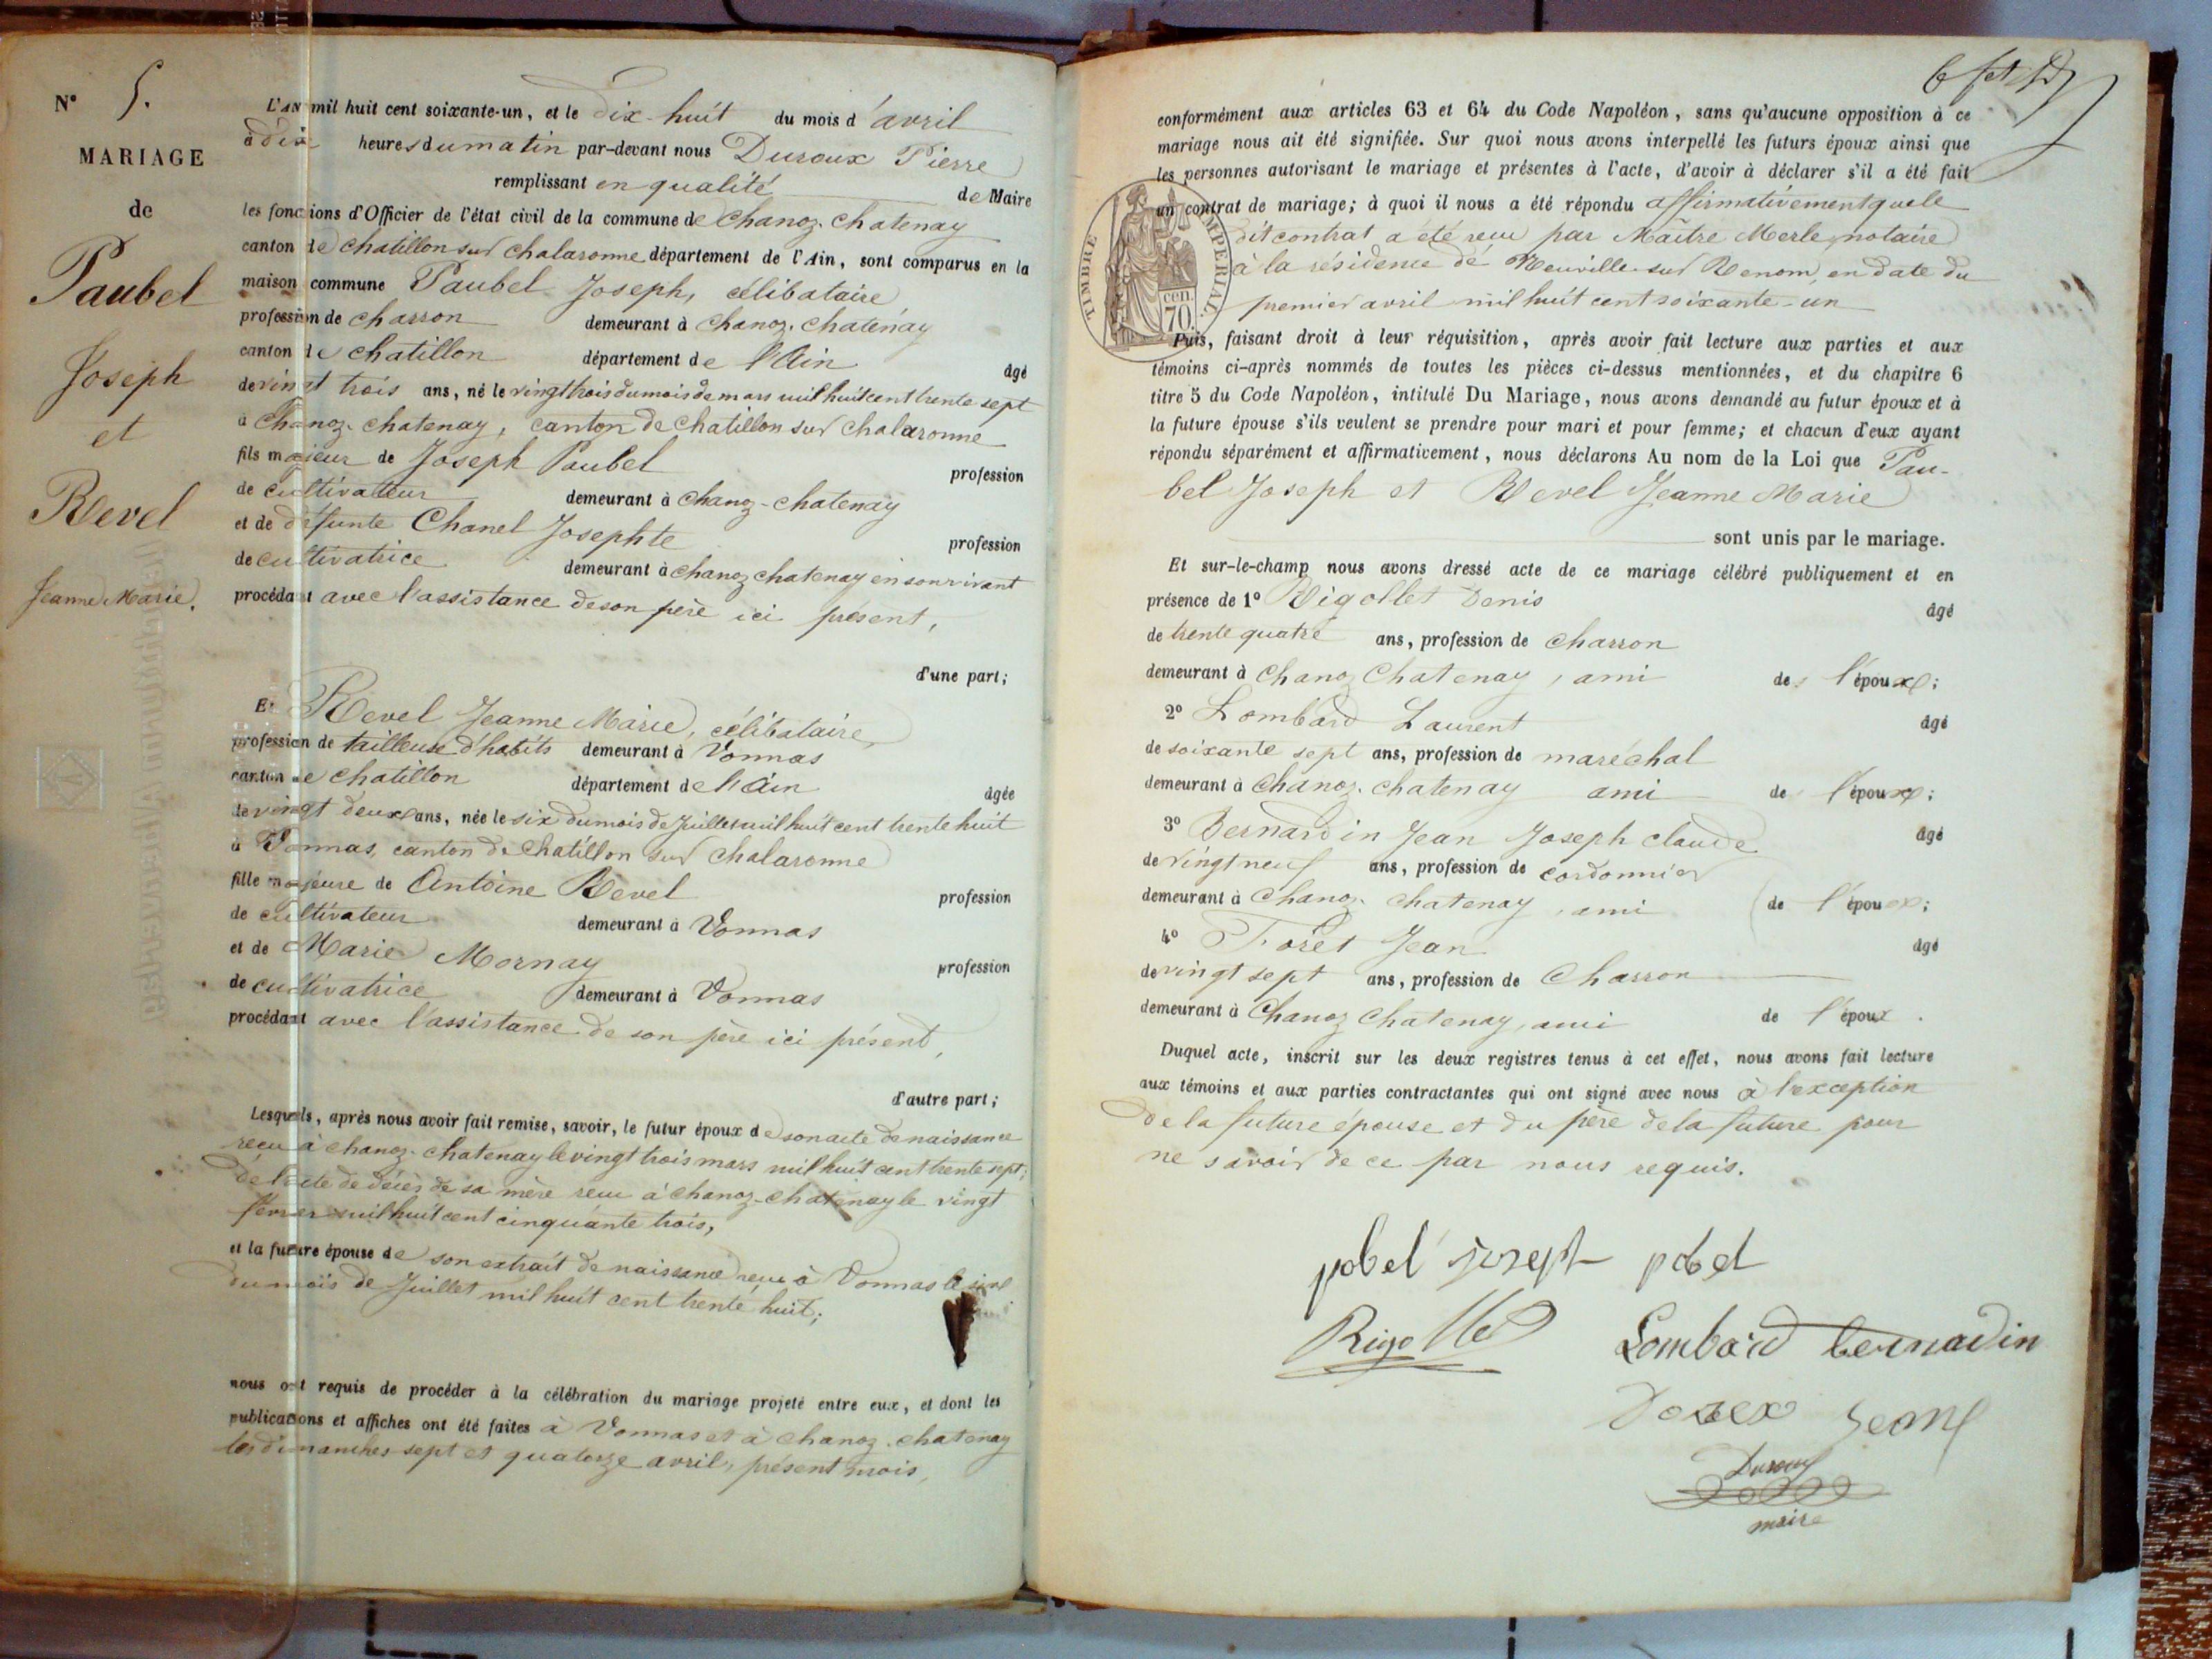 N° 5.
MARIAGE
de
Paubel
Joseph
et
Revel
Jeanne Marie.
L'AN mil huit cent soixante-un, et le dix-huit du mois d'avril
à dix heures du matin par-devant nous Duroux Pierre
remplissant en qualité de Maire
les fonctions d'Officier de l'état civil de la commune de Chanoz-Chatenay
canton de Chatillon sur Chalaronne département de l'Ain, sont comparus en la
maison commune Paubel Joseph, célibataire
profession de charron demeurant à Chanoz-Chatenay
canton de Chatillon département de l'Ain âgé
de vingt trois ans, né le vingt trois du mois de mars mil huit cent trente sept
à Chanoz-Chatenay, canton de Chatillon sur Chalaronne
fils majeur de Joseph Paubel profession
de cultivateur demeurant à Chanoz-Chatenay
et de défunte Chanel Josephte profession
de cultivatrice demeurant à Chanoz Chatenay en son vivant
procédant avec l'assistance de son père ici présent,
d'une part;
Et Revel Jeanne Marie, célibataire
profession de tailleuse d'habits demeurant à Vonnas
canton de Chatillon département de l'Ain âgée
de vingt deux ans, née le six du mois de Juillet mil huit cent trente huit
à Vonnas, canton de Chatillon sur Chalaronne
fille majeure de Antoine Revel profession
de cultivateur demeurant à Vonnas
et de Marie Mornay profession
de cultivatrice demeurant à Vonnas
procédant avec l'assistance de son père ici présent,
d'autre part;
Lesquels, après nous avoir fait remise, savoir, le futur époux de son acte de naissance
reçu à Chanoz-Chatenay le vingt trois mars mil huit cent trente sept;
de l'acte de décès de sa mère reçu à Chanoz-Chatenay le vingt
février mil huit cent cinquante trois,
et la future épouse de son extrait de naissance reçu à Vonnas le six
du mois de Juillet mil huit cent trente huit;
nous ont requis de procéder à la célébration du mariage projeté entre eux, et dont les
publications et affiches ont été faites à Vonnas et à Chanoz-Chatenay
les dimanches sept et quatorze avril, présent mois,
conformément aux articles 63 et 64 du Code Napoléon, sans qu'aucune opposition à ce
mariage nous ait été signifiée. Sur quoi nous avons interpellé les futurs époux ainsi que
les personnes autorisant le mariage et présentes à l'acte, d'avoir à déclarer s'il a été fait
un contrat de mariage; à quoi il nous a été répondu affirmativement que le
dit contrat a été reçu par Maître Merle, notaire
à la résidence de Neuville sur Renom, en date du
premier avril mil huit cent soixante-un
TIMBRE IMPERIAL.
70. cen.
Puis, faisant droit à leur réquisition, après avoir fait lecture aux parties et aux
témoins ci-après nommés de toutes les pièces ci-dessus mentionnées, et du chapitre 6
titre 5 du Code Napoléon, intitulé Du Mariage, nous avons demandé au futur époux et à
la future épouse s'ils veulent se prendre pour mari et pour femme; et chacun d'eux ayant
répondu séparément et affirmativement, nous déclarons Au nom de la Loi que Pau-
bel Joseph et Revel Jeanne Marie
sont unis par le mariage.
Et sur-le-champ nous avons dressé acte de ce mariage célébré publiquement et en
présence de 1° Rigollet Denis âgé
de trente quatre ans, profession de charron
demeurant à Chanoz Chatenay, ami de l'époux;
2° Lombard Laurent âgé
de soixante sept ans, profession de maréchal
demeurant à Chanoz-Chatenay ami de l'époux;
3° Bernardin Jean Joseph Claude âgé
de vingt neuf ans, profession de cordonnier
demeurant à Chanoz-Chatenay, ami de l'époux;
4° Foret Jean âgé
de vingt sept ans, profession de Charron
demeurant à Chanoz Chatenay, ami de l'époux.
Duquel acte, inscrit sur les deux registres tenus à cet effet, nous avons fait lecture
aux témoins et aux parties contractantes qui ont signé avec nous à l'exception
de la future épouse et du père de la future pour
ne savoir de ce par nous requis.
pobel joseph pobel
Rigollet Lombard bernadin
Duroux
maire